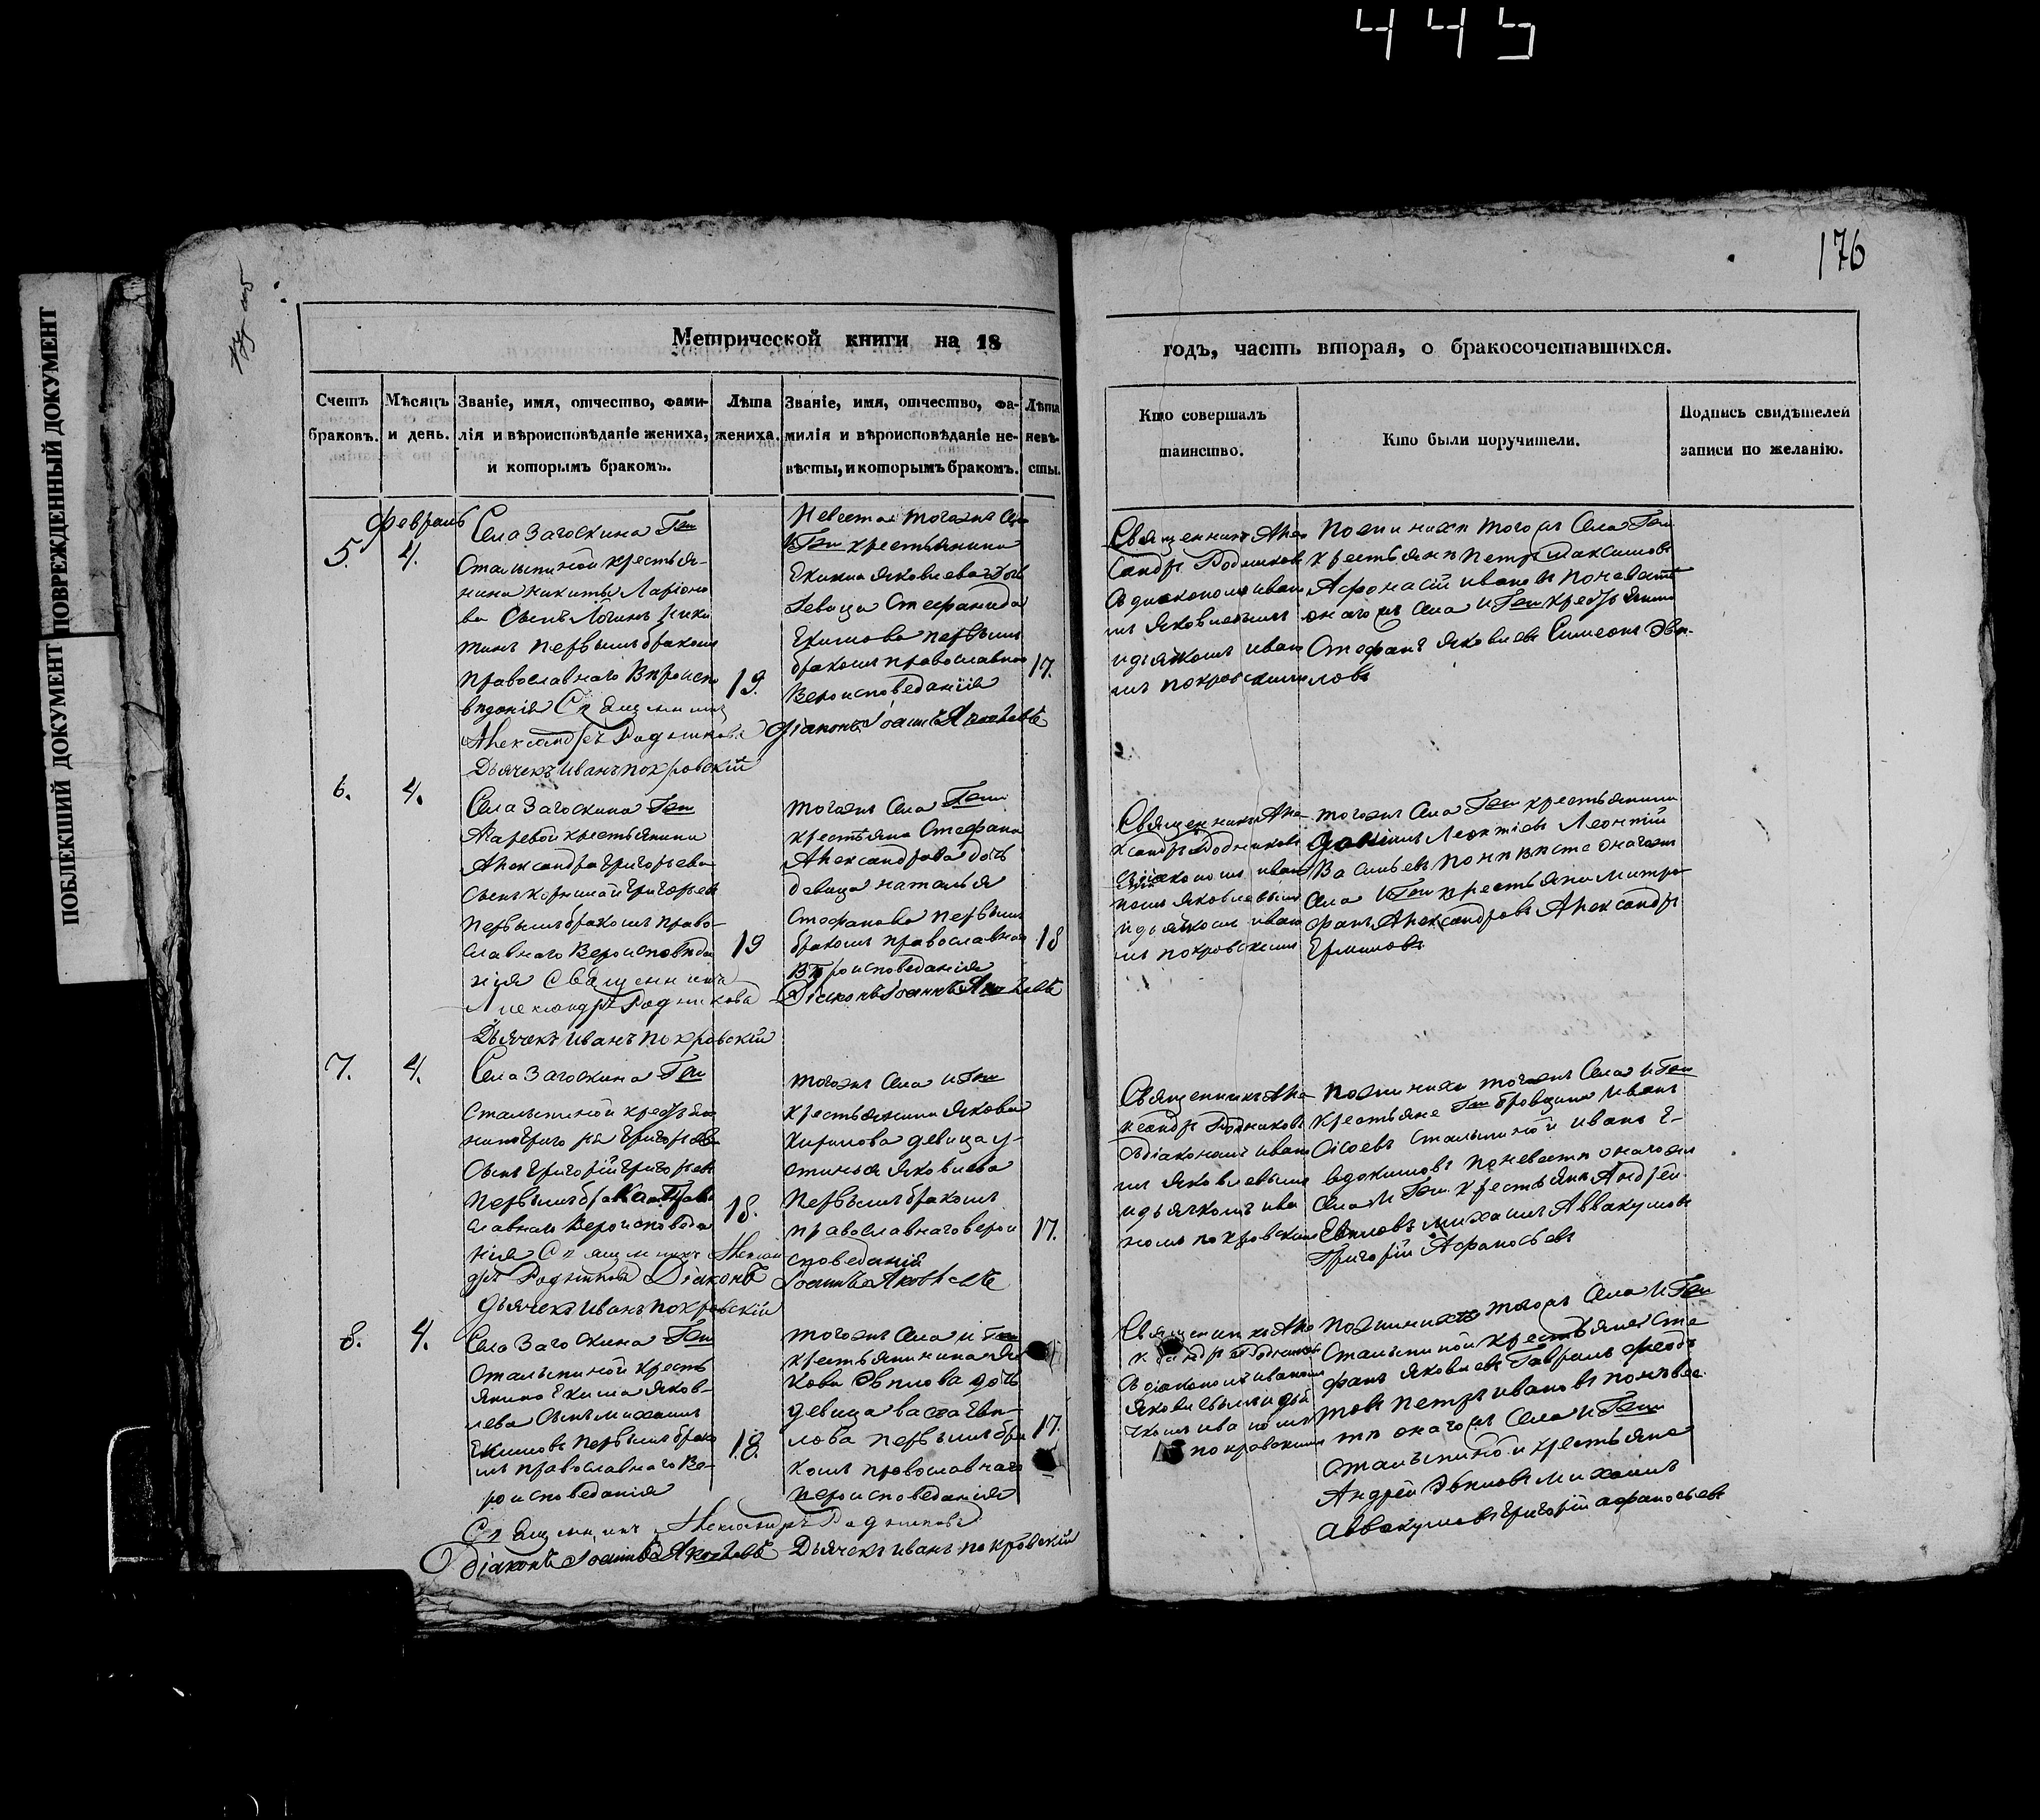 445
176
ПОВРЕЖДЕННЫЙ ДОКУМЕНТ
ПОБЛЕКШИЙ ДОКУМЕНТ
Метрической книги на 18
годъ, часть вторая, о бракосочетавшихся.
Счетъ браковъ.
Мѣсяцъ и день.
Званіе, имя, отчество, фами-
лія и вѣроисповѣданіе жениха,
и которымъ бракомъ.
Лѣта
жениха.
Званіе, имя, отчество, фа-
милія и вѣроисповѣданіе не-
вѣсты, и которымъ бракомъ.
Лѣта
невѣ-
сты.
Кто совершалъ
таинство.
Кто были поручители.
Подпись свидѣтелей
записи по желанію.
5.
февраль
4.
Села Загоскина Гжи
Сталыпиной крестья-
нина Никиты Ларіоно
ва Сынъ Логинъ Ники
тинъ первымъ бракомъ
православнаго Вѣроиспо
вѣданія Священникъ
Александръ Родников
Дьячекъ Иванъ Покровскій
19.
Невеста тогожъ Се
Гжи крестьянина
Екима Яковлева дочь
девица Стефанида
Екимова первымъ
бракомъ православно
Вероисповеданія
Діаконъ Іоаннъ Яковлевъ
17.
Священникъ Алек
сандръ Родников
съ диакономъ Ивано
мъ Яковлевымъ
и дьячкомъ Ивано
мъ Покровскимъ
По женихѣ тогожъ Села Гжи
крестьянѣ Петръ Максимовъ
Афонасій Ивановъ по невѣстѣ
онагожъ Села и Гжи крестьяни
Стефанъ Яковлевъ Симеонъ Эвп-
ловъ
6.
4.
Села Загоскина Гжи
крестьянина
Александра Григорьева
Сынъ Григорьевъ
первымъ бракомъ право-
славнаго Вероисповѣда
нія Священникъ
Александръ Родникова
Дьячекъ Иванъ Покровскій
19
тогожъ Села Гжи
крестьяна Стефана
Александрова дочь
девица Наталья
Стефанова первымъ
бракомъ православнаго
Вѣроисповеданія
Діаконъ Іоаннъ Яковлевъ
18
Священникъ Але
ксандръ Родников
съ діакономъ Ивано
мъ Яковлевымъ
и дьячкомъ Ивано
мъ Покровскимъ
тогожъ Села Гжи крестьянини
Леонтіевъ Леонтій
Васильевъ по невѣсте онагожъ
Села и Гжи крестьяни Митро
фанъ Александровъ Александръ
Ермиловъ
7.
4.
Села Загоскина Гжи
Сталыпиной крестья
нина Григорья Григорьева
Сынъ Григорій Григорьевъ
первымъ бракомъ Право
славнаго Вероисповеда
нія Священникъ Алексан
дръ Родников Діаконъ
Дьячекъ Иванъ Покровскій
18.
тогожъ Села и Гжи
крестьянина Якова
Кирилова девица У-
стинья Яковлева
первымъ бракомъ
православнаго верои
споведаній
Іоаннъ Яковлевъ
17.
Священникъ Але
ксандръ Родников
съ діакономъ Ивано
мъ Яковлевымъ
и дьячкомъ Ива
номъ Покровскимъ
По женихи тогожъ Села и Гжи
крестьяне Гжи Иванъ
Сталыпиной Иванъ Е-
вдокимовъ по невѣстѣ онагожъ
Села и Гжи крестьянѣ Андрей
Евпловъ Михаилъ Аввакумовъ
Григорій Афанасьевъ
8.
4.
Села Загоскина Гжи
Сталыпиной кресть
янина Екима Яков-
лева Сынъ Михаилъ
Екимовъ первымъ брако
мъ православнаго Ве-
роисповеданія
18.
тогожъ Села и Гжи
крестьянинина Я
кова Эвплова дочь
девица Васса Евп-
лова первымъ бра
комъ православнаго
вероисповеданія
17.
Священникъ Але
ксандръ Родников
съ діакономъ Иваном
Яковлевымъ и дья
чкомъ Иваномъ
Покровскимъ
По женихѣ тогожъ Села и Гжи
Сталыпиной крестьяне Сте
фанъ Яковлевъ Гаврилъ Федо
товъ Петръ Ивановъ по невѣс
тѣ онагожъ Села и Гжи
Сталыпиной крестьяне
Андрей Эвпловъ Михаилъ
Аввакумовъ Григорій Афанасьевъ
Священникъ Александръ Родников
Діаконъ Іоаннъ Яковлевъ Дьячекъ Иванъ Покровскій